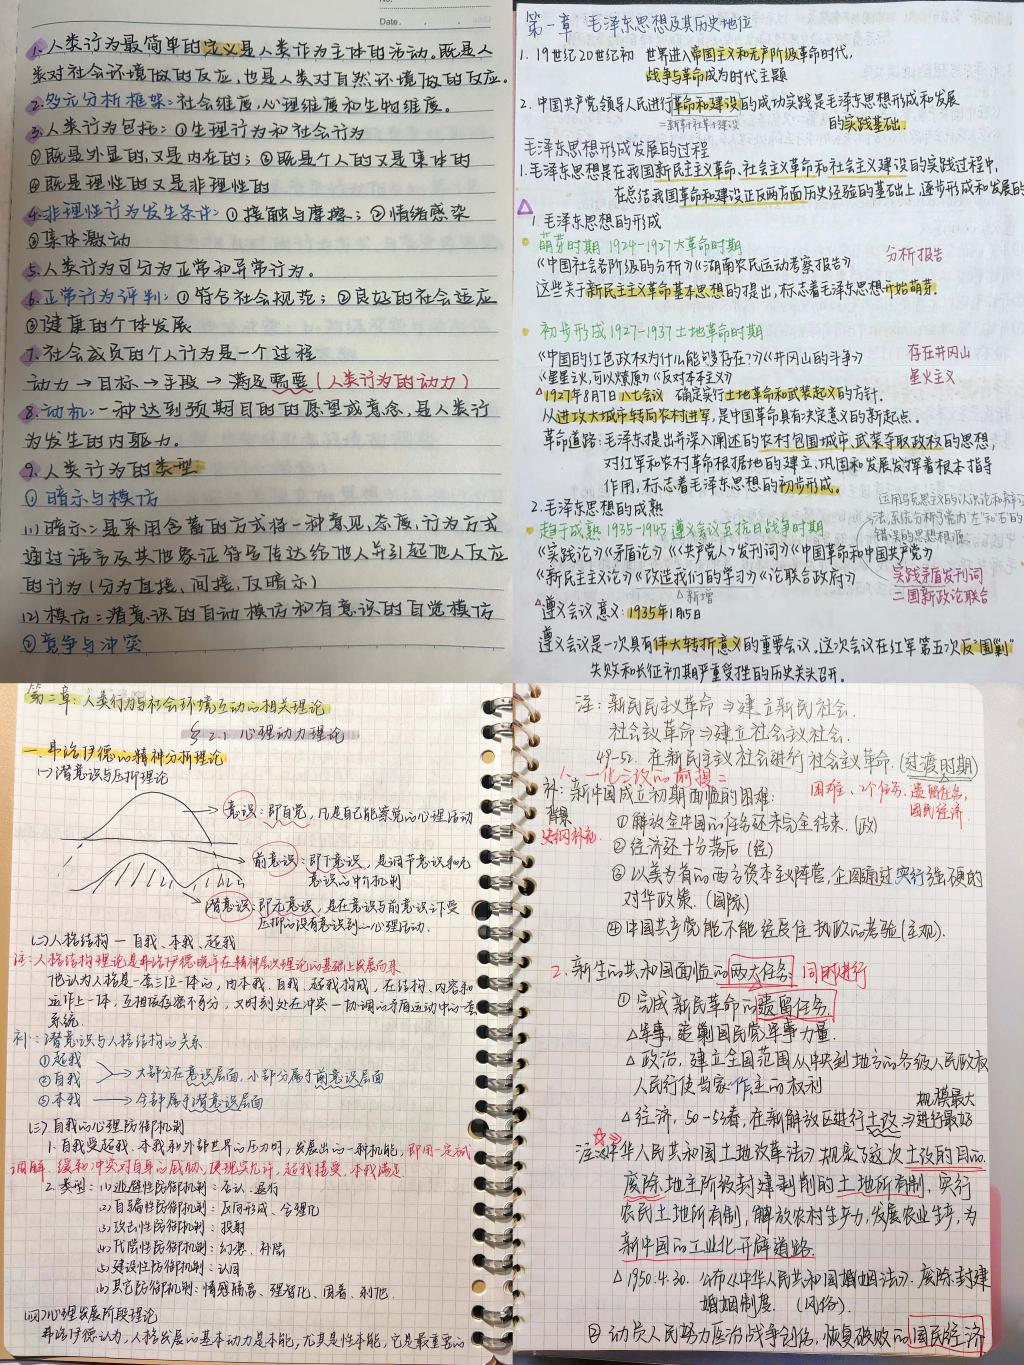 No.
Date.
1. 人类行为最简单的定义是人类作为主体的活动。既是人
类对社会环境做的反应，也是人类对自然环境做的反应。
2. 多元分析框架：社会维度、心理维度和生物维度。
3. 人类行为包括：①生理行为和社会行为
②既是外显的，又是内在的；③既是个人的又是集体的
④既是理性的又是非理性的
4. 非理性行为发生条件：①接触与摩擦；②情绪感染
③集体激动
5. 人类行为可分为正常和异常行为。
6. 正常行为评判：①符合社会规范；②良好的社会适应
③健康的个体发展
7. 社会成员的个人行为是一个过程
动力→目标→手段→满足需要（人类行为的动力）
8. 动机：一种达到预期目的的愿望或意念，是人类行
为发生的内驱力。
9. 人类行为的类型
①暗示与模仿
(1)暗示：是采用含蓄的方式将一种意见、态度、行为方式
通过语言及其他象征符号传达给他人并引起他人反应
的行为（分为直接、间接、反暗示）
(2)模仿：潜意识的自动模仿和有意识的自觉模仿
②竞争与冲突
第一章 毛泽东思想及其历史地位
1. 19世纪20世纪初 世界进入帝国主义和无产阶级革命时代，
战争与革命成为时代主题
2. 中国共产党领导人民进行革命和建设的成功实践是毛泽东思想形成和发展
=新革+社革+建设
的实践基础.
毛泽东思想形成发展的过程
1. 毛泽东思想是在我国新民主义革命、社会主义革命和社会主义建设的实践过程中，
在总结我国革命和建设正反两方面历史经验的基础上逐步形成和发展的
1. 毛泽东思想的形成
萌芽时期 1924-1927 大革命时期
《中国社会各阶级的分析》《湖南农民运动考察报告》
分析报告
这些关于新民主主义革命基本思想的提出，标志着毛泽东思想开始萌芽.
初步形成 1927-1937 土地革命时期
《中国的红色政权为什么能够存在？》《井冈山的斗争》
存在井冈山
《星星之火，可以燎原》《反对本本主义》
星火主义
1927年8月7日 八七会议 确定实行土地革命和武装起义的方针.
从进攻大城市转向农村进军，是中国革命具有决定意义的新起点.
革命道路：毛泽东提出并深入阐述的农村包围城市、武装夺取政权的思想，
对红军和农村革命根据地的建立、巩固和发展发挥着根本指导
作用，标志着毛泽东思想的初步形成。
2. 毛泽东思想的成熟
运用马克思主义的认识论和辩证
法，系统分析了党内“左”和右的
错误的思想根源
趋于成熟 1935-1945 遵义会议至抗日战争时期
《实践论》《矛盾论》《〈共产党人〉发刊词》《中国革命和中国共产党》
《新民主主义论》《改造我们的学习》《论联合政府》
实践矛盾发刊词
二国新政论联合
新增
遵义会议意义：1935年1月5日
遵义会议是一次具有伟大转折意义的重要会议，这次会议在红军第五次反“围剿”
失败和长征初期严重受挫的历史关头召开.
第二章：人类行为与社会环境互动的相关理论
§2.1 心理动力理论
一、弗洛伊德的精神分析理论
(一)潜意识与压抑理论
意识：即自觉，凡是自己能察觉的心理活动
前意识：即下意识，是调节意识和无
意识的中介机制
潜意识：即无意识，是在意识与前意识之下受
压抑的没有意识到的心理活动.
(二)人格结构 — 自我、本我、超我
注：人格结构理论是弗洛伊德晚年在精神层次理论的基础上发展而来
他认为人格是一套三位一体的，由本我、自我、超我构成，在结构、内容和
运作上一体，互相依存密不可分，又时刻处在冲突—协调的矛盾运动中的一套
系统.
补：潜意识与人格结构的关系
①超我
②自我 大部分在意识层面，小部分属于前意识层面
③本我→全部属于潜意识层面
(三)自我的心理防御机制
1. 自我受超我、本我和外部世界的压力时，发展出的一种机能，即用一定方式
调解、缓和冲突对自身的威胁，使现实允许，超我接受，本我满足
2. 类型：(1)逃避性防御机制：否认、退行
(2)自骗性防御机制：反向形成、合理化
(3)攻击性防御机制：投射
(4)代偿性防御机制：幻想、补偿
(5)建设性防御机制：认同
(6)其它防御机制：情感隔离、理智化、固着、利他
(四)心理发展阶段理论
弗洛伊德认为，人格发展的基本动力是本能，尤其是性本能，它是最重要的
注：新民主义革命⇒建立新民社会.
社会主义革命⇒建立社会主义社会.
49-52. 在新民主义社会进行社会主义革命.(过渡时期)
1. 一化三改的前提：
补：新中国成立初期面临的困难：
困难、2个任务、遗留任务,
国民经济
背景
史纲补充.
①解放全中国的任务还未完全结束.(政)
②经济还十分落后(经)
③以美为首的西方资本主义阵营，企图通过实行强硬的
对华政策.(国际)
④中国共产党能不能经受住执政的考验(主观).
2. 新生的共和国面临的两大任务：同时进行
①完成新民革命的遗留任务.
△军事，追剿国民党军事力量.
△政治，建立全国范围从中央到地方的各级人民政权
人民行使当家作主的权利
△经济，50-53春，在新解放区进行土改⇒规模最大
进行最好
注：《中华人民共和国土地改革法》规定了这次土改的目的.
废除地主阶级封建剥削的土地所有制，实行
农民土地所有制，解放农村生产力，发展农业生产，为
新中国的工业化开辟道路.
△1950.4.30. 公布《中华人民共和国婚姻法》.废除封建
婚姻制度.(风俗).
②动员人民努力医治战争创伤，恢复破败的国民经济